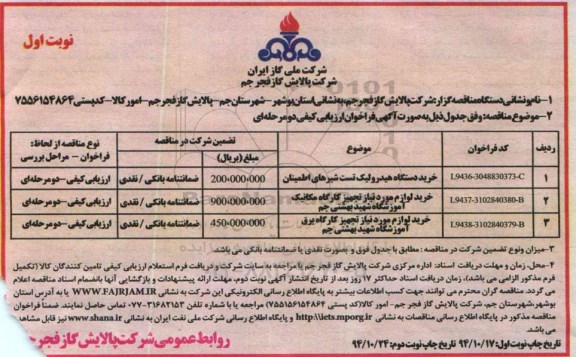 نوبت اول
شرکت ملی گاز ایران
شرکت پالایش گاز فجر جم
۱- نام و نشانی دستگاه مناقصه گزار: شرکت پالایش گاز فجر جم، به نشانی استان بوشهر - شهرستان جم - پالایش گاز فجر جم - امور کالا - کدپستی ۷۵۵۶۱۵۴۸۶۴
۲- موضوع مناقصه: وفق جدول ذیل به صورت آگهی فراخوان ارزیابی کیفی دو مرحله ای
ردیف | کد فراخوان | موضوع | تضمین شرکت در مناقصه مبلغ (ریال) | نوع مناقصه از لحاظ: فراخوان - مراحل بررسی
۱ | L9436-3048830373-C | خرید دستگاه هیدرولیک تست شیرهای اطمینان | 200-000-000 | ضمانتنامه بانکی / نقدی | ارزیابی کیفی - دو مرحله ای
۲ | L9437-3102840380-B | خرید لوازم مورد نیاز تجهیز کارگاه مکانیک آموزشگاه شهید بهشتی جم | 900-000-000 | ضمانتنامه بانکی / نقدی | ارزیابی کیفی - دو مرحله ای
۳ | L9438-3102840379-B | خرید لوازم مورد نیاز تجهیز کارگاه برق آموزشگاه شهید بهشتی جم | 450-000-000 | ضمانتنامه بانکی / نقدی | ارزیابی کیفی - دو مرحله ای
۳- میزان ونوع تضمین شرکت در مناقصه : مطابق با جدول فوق و به صورت نقدی یا ضمانتنامه بانکی می باشد.
۴- محل، زمان و مهلت دریافت اسناد: اداره مرکزی شرکت پالایش گاز فجر جم یا مراجعه به سایت شرکت و دریافت فرم استعلام ارزیابی کیفی تامین کنندگان کالا (تکمیل
فرم مذکور الزامی می باشد)، زمان دریافت اسناد حداکثر ۱۷ روز بعد از تاریخ انتشار آگهی نوبت دوم، مهلت ارائه پیشنهادات و بازگشایی آنها بانضمام اسناد مناقصه اعلام
می گردد. مناقصه گران محترم می توانند جهت کسب اطلاعات بیشتر به پایگاه اطلاع رسانی الکترونیکی این شرکت به نشانی WWW.FAJRJAM.IR یا به آدرس استان
بوشهر، شهرستان جم، شرکت پالایش گاز فجر جم - امور کالا (کد پستی ۷۵۵۱۵۶۱۵۴۸۶۴) مراجعه یا با شماره تلفن ۳۱۶۸۲۱۵۳-۰۷۷ تماس حاصل نمایند. ضمناً فراخوان
مناقصه مذکور در پایگاه اطلاع رسانی مناقصات به نشانی http\\iets.mporg.ir و پایگاه اطلاع رسانی شرکت ملی نفت ایران به نشانی www.shana.ir نیز قابل مشاهد
می باشد.
تاریخ چاپ نوبت اول: ۹۴/۱۰/۱۷ تاریخ چاپ نوبت دوم: ۹۴/۱۰/۲۴
روابط عمومی شرکت پالایش گاز فجر جم